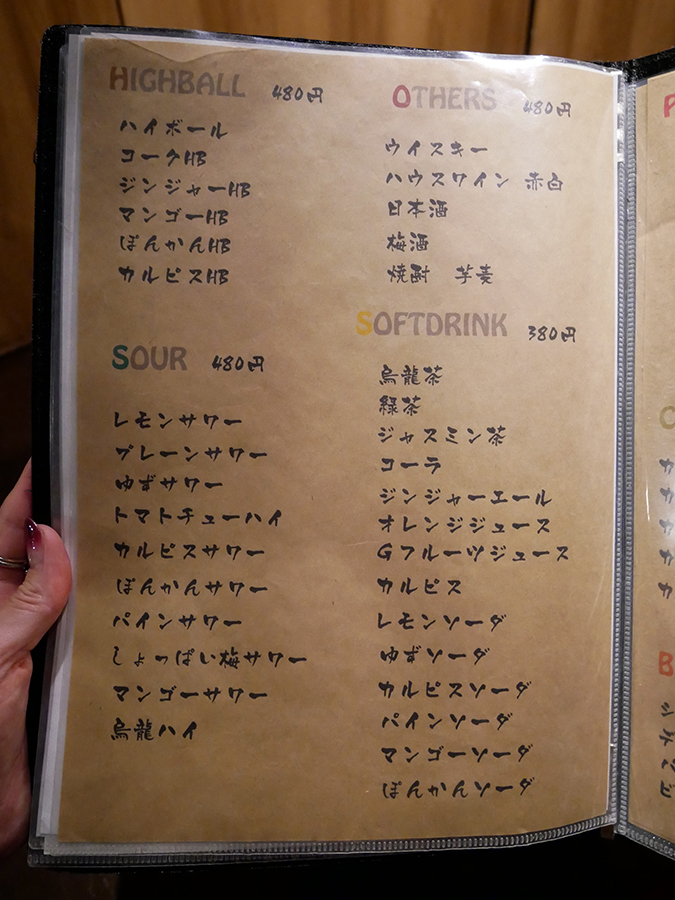 HIGHBALL 480円
ハイボール
コークHB
ジンジャーHB
マンゴーHB
ぽんかんHB
カルピスHB
SOUR 480円
レモンサワー
プレーンサワー
ゆずサワー
トマトチューハイ
カルピスサワー
ぽんかんサワー
パインサワー
しょっぱい梅サワー
マンゴーサワー
烏龍ハイ
OTHERS 480円
ウイスキー
ハウスワイン 赤白
日本酒
梅酒
焼酎 芋麦
SOFTDRINK 380円
烏龍茶
緑茶
ジャスミン茶
コーラ
ジンジャーエール
オレンジジュース
Gフルーツジュース
カルピス
レモンソーダ
ゆずソーダ
カルピスソーダ
パインソーダ
マンゴーソーダ
ぽんかんソーダ